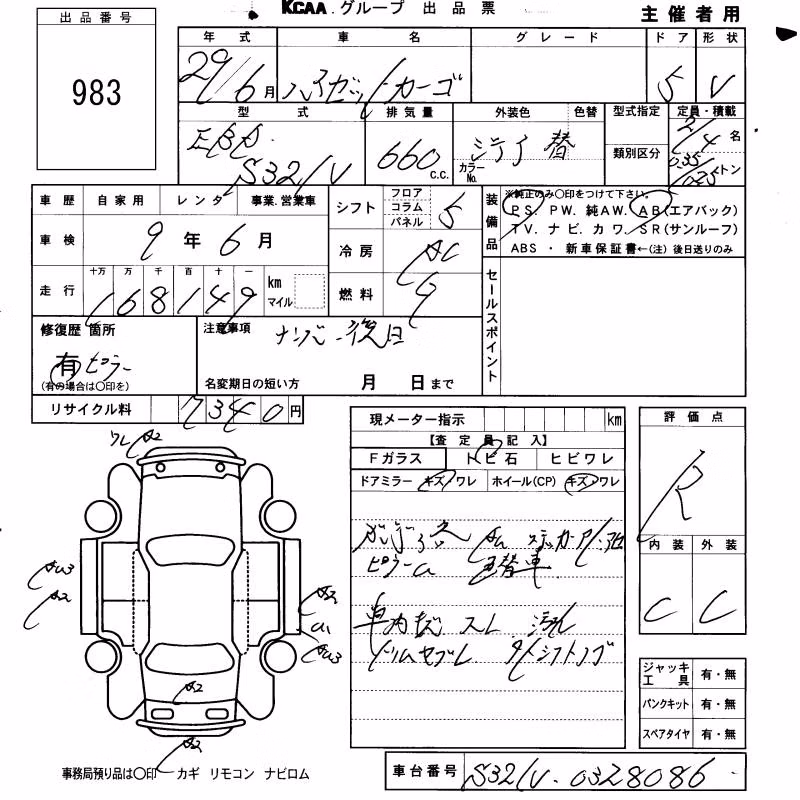 KCAA.グループ 出品票
主催者用
出品番号
983
年式 車名 グレード ドア 形状
29/6月 ハイゼットカーゴ 5 V
型式 排気量 外装色 色替 型式指定 定員・積載
EBD S321V 660 C.C. カラーNo. 替 類別区分 2/4名
0.35/0.25トン
車歴 自家用 レンタ 事業.営業車
シフト フロア コラム パネル 5
車検 9年6月
冷房 AC
走行 十万 万 千 百 十 一
168149 km マイル
燃料 G
装備品
※純正のみ〇印をつけて下さい。
PS. PW. 純AW. AB(エアバック)
TV. ナビ. カワ. SR(サンルーフ)
ABS ・ 新車保証書←(注) 後日送りのみ
セールスポイント
修復歴 箇所
有 ピラー
(有の場合は〇印を)
注意事項 ナンバー後日
名変期日の短い方 月 日まで
リサイクル料 7340円
現メーター指示 km
【査定員記入】
Fガラス トビ石 ヒビワレ
ドアミラー キズ・ワレ ホイール(CP) キズ・ワレ
ピラーU 替車
車内キズ スレ 汚れ
評価点
R
内装 外装
C C
ジャッキ工具 有・無
パンクキット 有・無
スペアタイヤ 有・無
ワレ A2
AU3
A2
A2
U1
AU3
A2
A2
事務局預り品は〇印 カギ リモコン ナビロム
車台番号 S321V-0328086